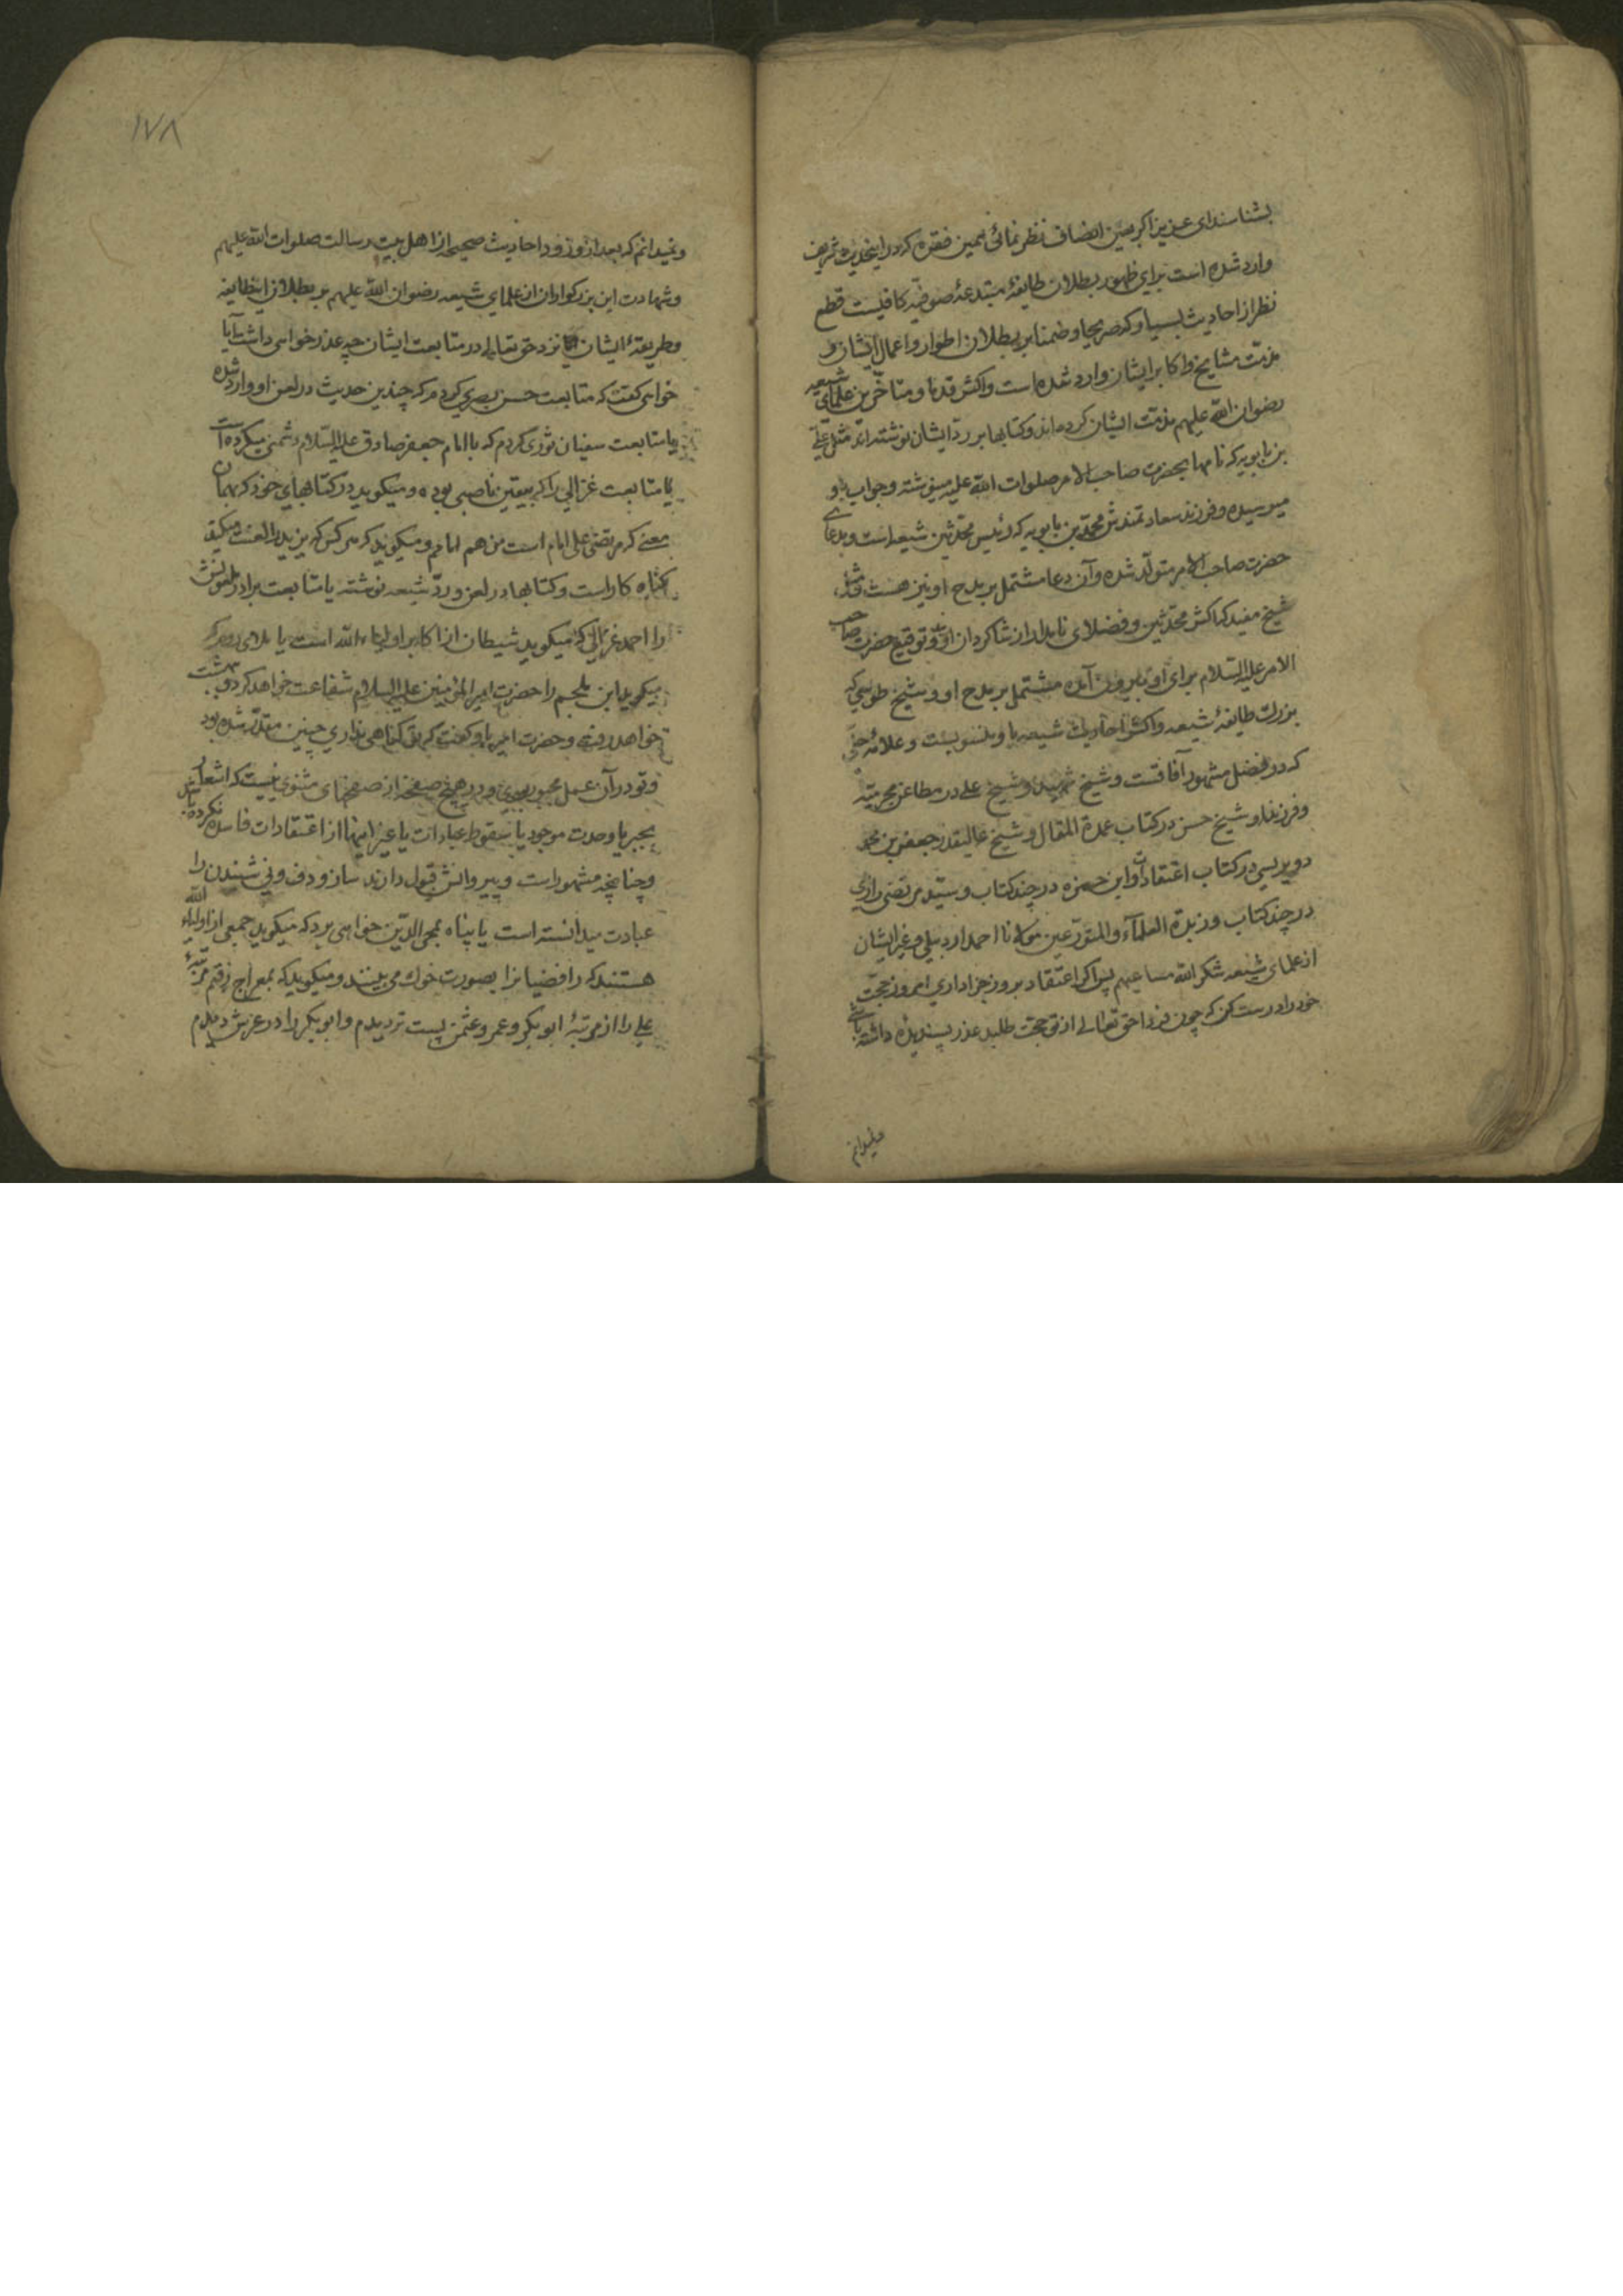 بشناسند ای عزیز اگر بعین انصاف نظر نمائی همین فقره که در اینحدیث شریف
وارد شده است برای ظهور بطلان طایفهٔ مبتدعهٔ صوفیه کافیست قطع
نظر از احادیث بسیار که صریحا و ضمنا بر بطلان اطوار و اعمال ایشان و
مذمّت مشایخ و اکابر ایشان وارد شده است و اکثر قدما و متأخّرین علمای شیعه
رضوان الله علیهم مذمّت ایشان کرده‌اند و کتابها بر ردّ ایشان نوشته‌اند مثل علی
بن بابویه که نامها بحضرت صاحب الامر صلوات الله علیه مینوشته و جواب باو
میرسیده و فرزند سعادتمندش محمّد بن بابویه که رئیس محدّثین شیعه است و بدعای
حضرت صاحب الامر متولّد شده و آن دعا مشتمل بر مدح او نیز هست و مثل
شیخ مفید که اکثر محدّثین و فضلای نامدار از شاگردان اوست و توقیع حضرت صاحب
الامر علیه السّلام برای او بیرون آمده مشتمل بر مدح او و شیخ طوسی که
بزرگ طایفهٔ شیعه و اکثر احادیث شیعه باو منسوبست و علامهٔ حلّی
که در فضل مشهور آفاقست و شیخ شهید و شیخ علی در مطاعن مجرمیّه
و فرزند او شیخ حسن در کتاب عمدة المقال و شیخ عالیقدر جعفر بن محمد
دوریستی در کتاب اعتقادات و ابن حمزه در چند کتاب و سیّد مرتضی رازی
در چند کتاب و زبدة العلمآء و المتورّعین مولانا احمد اردبیلی و غیر ایشان
از علمای شیعه شکر الله مساعیهم پس اگر اعتقاد بروز جزا داری امروز حجّت
خود را درست کن که چون فردا حق تعالی از تو حجت طلبد عذر پسندیده داشته باشی
و نمیدانم
١٧٨
و نمیدانم که بعد از ورود احادیث صحیحه از اهل بیت رسالت صلوات الله علیهم
و شهادت این بزرگواران از علمای شیعه رضوان الله علیهم بر بطلان اینطایفه
و طریقهٔ ایشان نزد حق تعالی در متابعت ایشان چه عذر خواهی داشت آیا
خواهی گفت که متابعت حسن بصری کردم که چندین حدیث در لعن او وارد شده
یا متابعت سفیان ثوری کردم که با امام جعفر صادق علیه السّلام دشمنی میکرده است
یا متابعت غزالی را که بیقین ناصبی بوده و میگوید در کتابهای خود که بهمان
معنی که مرتضی علی امام است من هم امامم و میگوید که هر کس که یزید را لعنت میکند
گناه کار است و کتابها در لعن و ردّ شیعه نوشته یا متابعت برادر ملعونش
را احمد غزالی که میگوید شیطان از اکابر اولیاء الله است یا ملای روم که
میگوید ابن ملجم را حضرت امیر المؤمنین علیه السلام شفاعت خواهد کرد و بهشت
خواهد رفت و حضرت امیر باو گفت که تو گناهی نداری چنین مقدّر شده بود
و تو در آن عمل مجبور بودی و در هیچ صفحه از صفحهای مثنوی نیست که اشعار
بجبر یا وحدت موجود یا سقوط عبادات یا غیر اینها از اعتقادات فاسده نکرده باشد
و چنانچه مشهور است و پیروانش قبول دارند ساز و دف و نی شنیدن را
عبادت میدانسته است یا پناه بمحی الدّین خواهی برد که میگوید جمعی از اولیاء الله
هستند که رافضیانرا بصورت خوک می‌بینند و میگوید که بمعراج رفتم مرتبهٔ
علی را از مرتبهٔ ابوبکر و عمر و عثمن پست تر دیدم و ابوبکر را در عرش دیدم